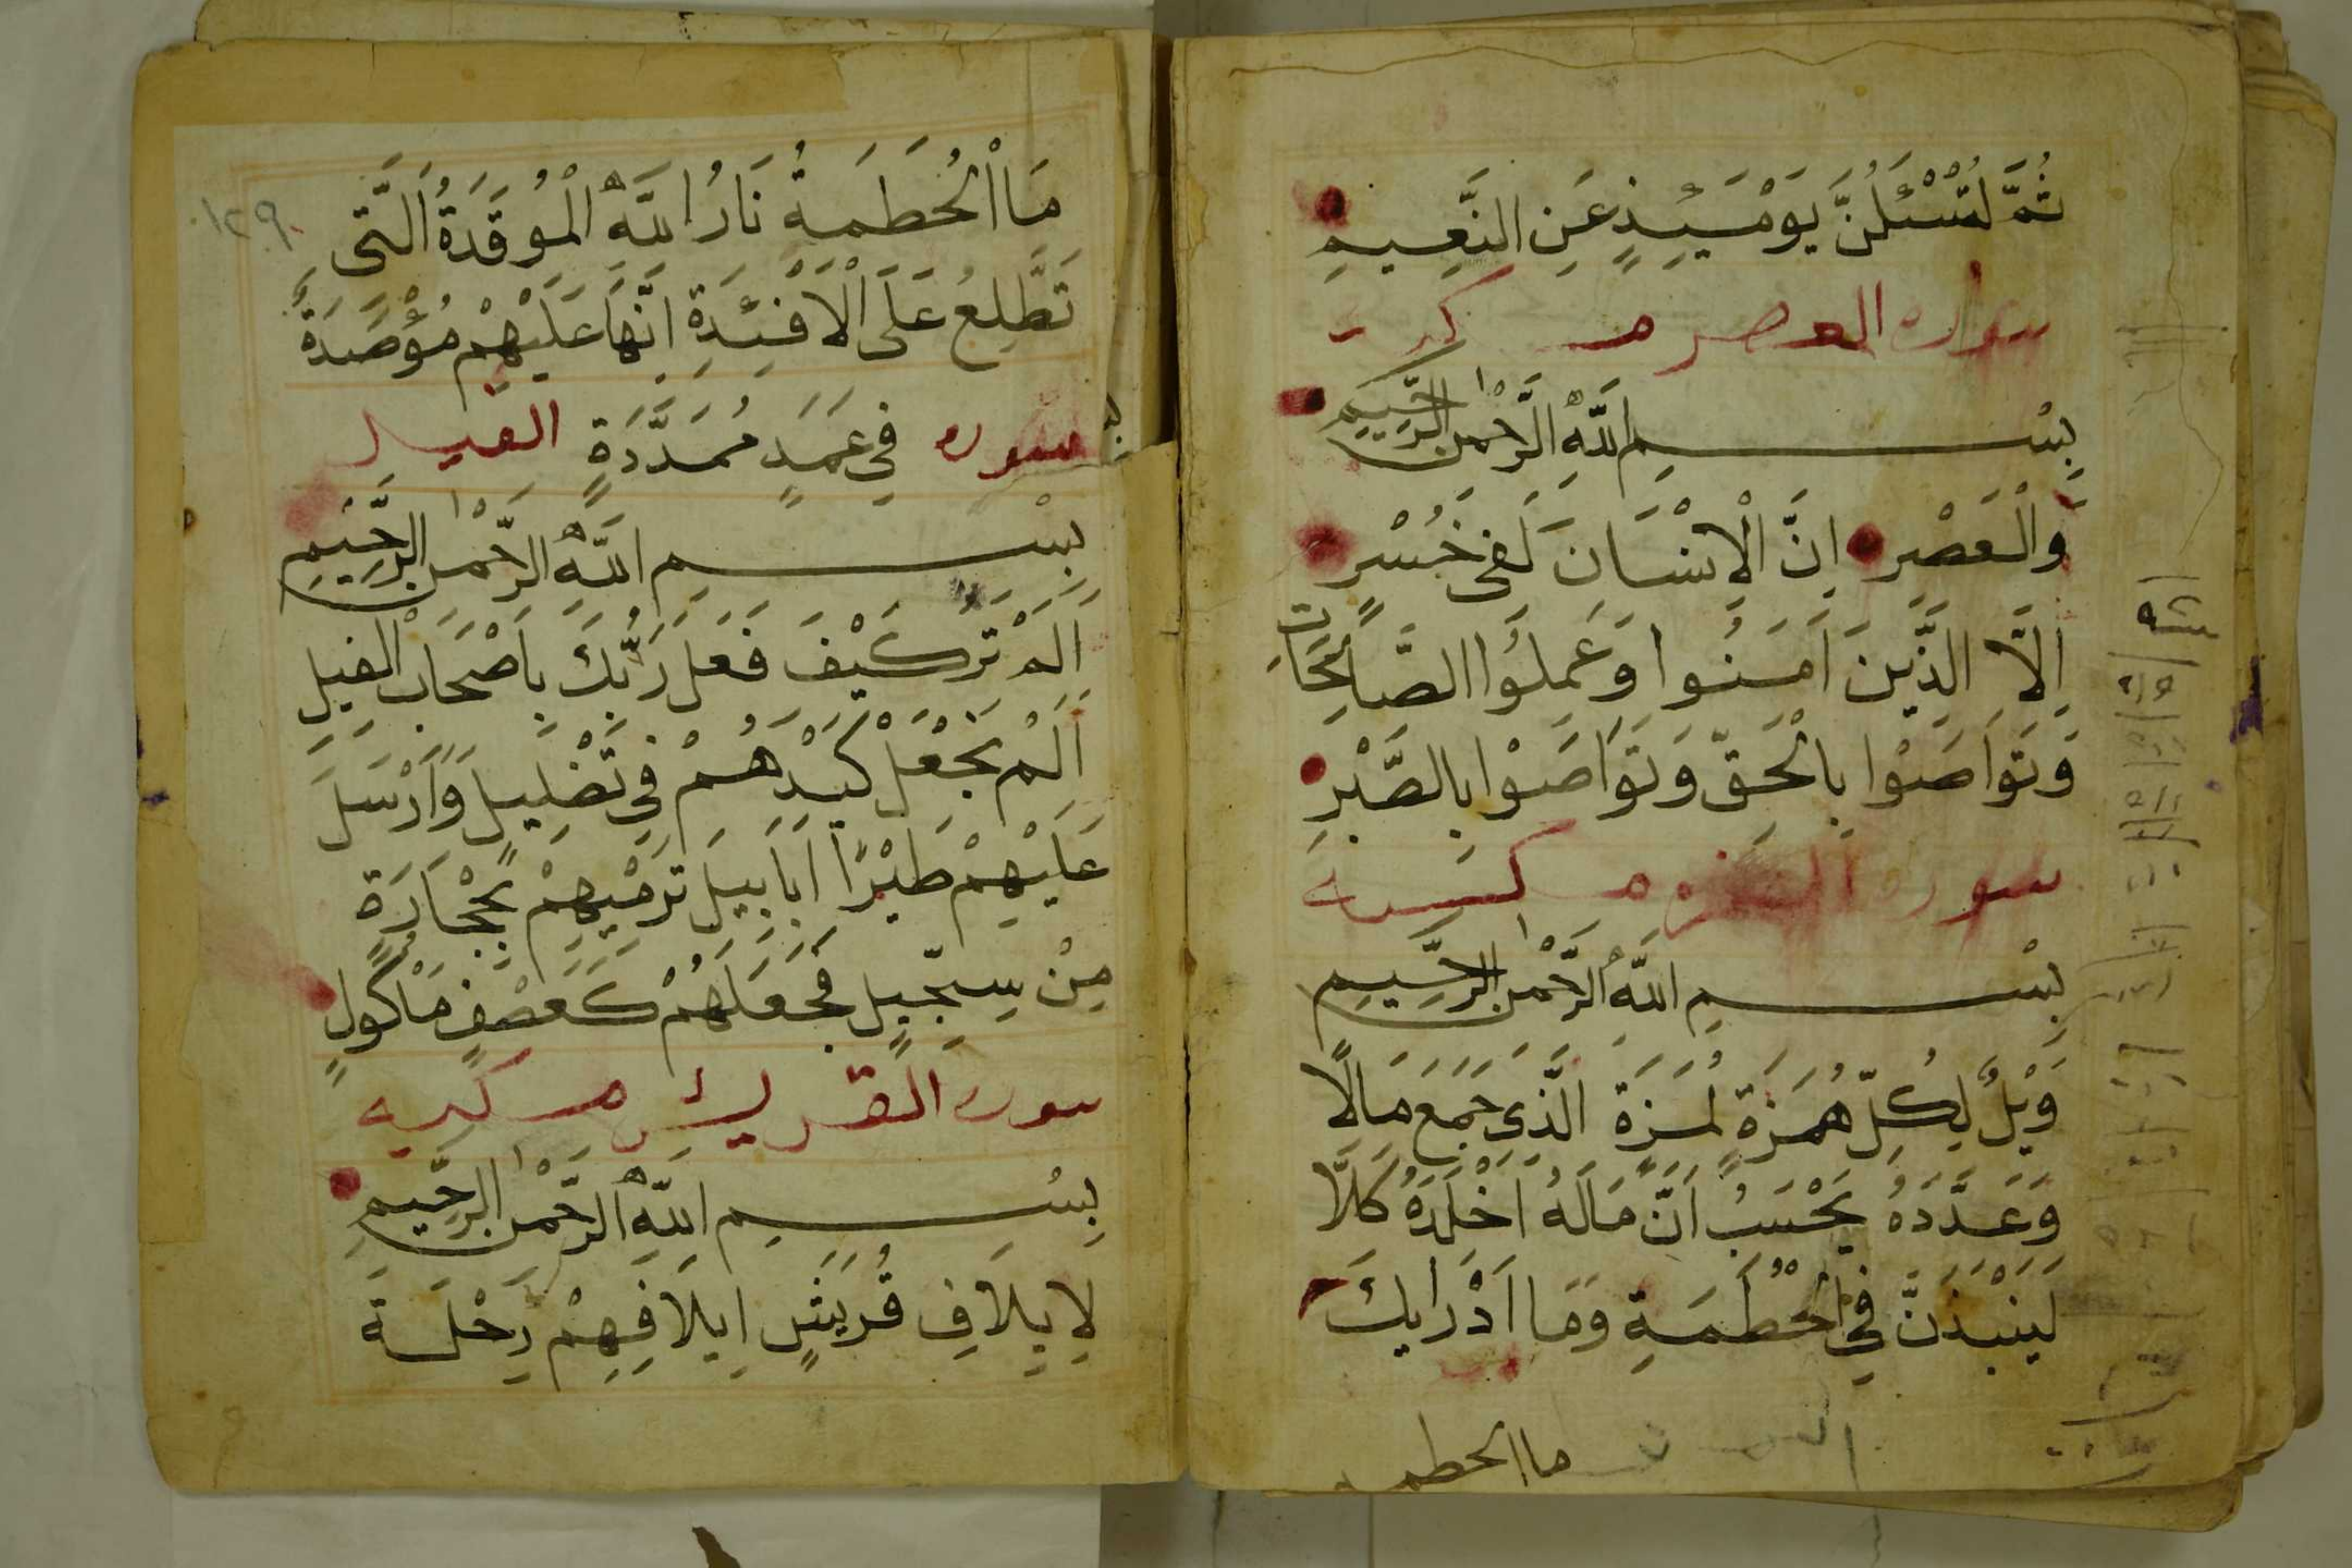 ثُمَّ لَتُسْئَلُنَّ يَوْمَئِذٍ عَنِ النَّعِيمِ
سوره العصر مـكـيـه
بِسْمِ اللَّهِ الرَّحْمٰنِ الرَّحِيمِ
وَالْعَصْرِ اِنَّ الْاِنْسَانَ لَفِى خُسْرٍ
اِلَّا الَّذِينَ اَمَنُوا وَعَمِلُوا الصَّالِحَاتِ
وَتَوَاصَوْا بِالْحَقِّ وَتَوَاصَوْا بِالصَّبْرِ
سوره مـكـيـه
بِسْمِ اللَّهِ الرَّحْمٰنِ الرَّحِيمِ
وَيْلٌ لِكُلِّ هُمَزَةٍ لُمَزَةٍ الَّذِى جَمَعَ مَالًا
وَعَدَّدَهُ يَحْسَبُ اَنَّ مَالَهُ اَخْلَدَهُ كَلَّا
لَيُنْبَذَنَّ فِى الْحُطَمَةِ وَمَا اَدْرَايكَ
ما الحطمـ
١٢٩
مَا الْحُطَمَةُ نَارُ اللَّهِ الْمُوقَدَةُ اَلَّتِى
تَطَّلِعُ عَلَى الْاَفْئِدَةِ اِنَّهَا عَلَيْهِمْ مُؤْصَدَةٌ
سوره فِى عَمَدٍ مُمَدَّدَةٍ الفيل
بِسْمِ اللَّهِ الرَّحْمٰنِ الرَّحِيمِ
اَلَمْ تَرَ كَيْفَ فَعَلَ رَبُّكَ بِاَصْحَابِ الْفِيلِ
اَلَمْ يَجْعَلْ كَيْدَهُمْ فِى تَضْلِيلٍ وَاَرْسَلَ
عَلَيْهِمْ طَيْرًا اَبَابِيلَ تَرْمِيهِمْ بِحِجَارَةٍ
مِنْ سِجِّيلٍ فَجَعَلَهُمْ كَعَصْفٍ مَاْكُولٍ
سوره القريش مـكـيه
بِسْمِ اللَّهِ الرَّحْمٰنِ الرَّحِيمِ
لِاِيلَافِ قُرَيْشٍ اِيلَافِهِمْ رِحْلَةَ